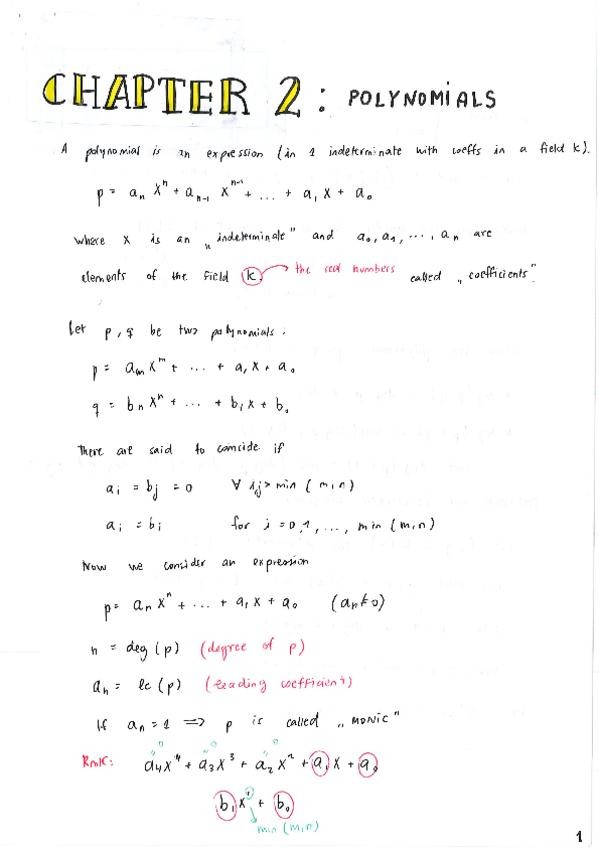 CHAPTER 2: POLYNOMIALS
A polynomial is an expression (in 1 indeterminate with coeffs in a field k).
p = aₙ xⁿ + aₙ₋₁ xⁿ⁻¹ + ... + a₁ x + a₀
where x is an „indeterminate" and a₀, a₁, ..., aₙ are
elements of the field k. → the real numbers called „coefficients".
Let p, q be two polynomials.
p = aₘ xᵐ + ... + a₁ x + a₀
q = bₙ xⁿ + ... + b₁ x + b₀
There are said to coincide if
aᵢ = bⱼ = 0 ∀ i,j > min (m,n)
aᵢ = bᵢ for i = 0,1, ..., min (m,n)
Now we consider an expression
p = aₙ xⁿ + ... + a₁ x + a₀ (aₙ ≠ 0)
n = deg (p) (degree of p)
aₙ = lc (p) (leading coefficient)
If aₙ = 1 ⇒ p is called „MONIC"
0 0 0
Rmk: a₄x⁴ + a₃x³ + a₂x² + a₁x + a₀
b₁x¹ + b₀
min (m,n)
1